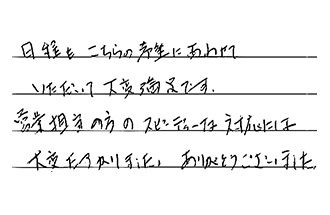 日程も こちらの希望にあわせて
いただいて 大変満足です。
営業担当の方の スピーディーな 対応には
大変助かりました。ありがとうございました。